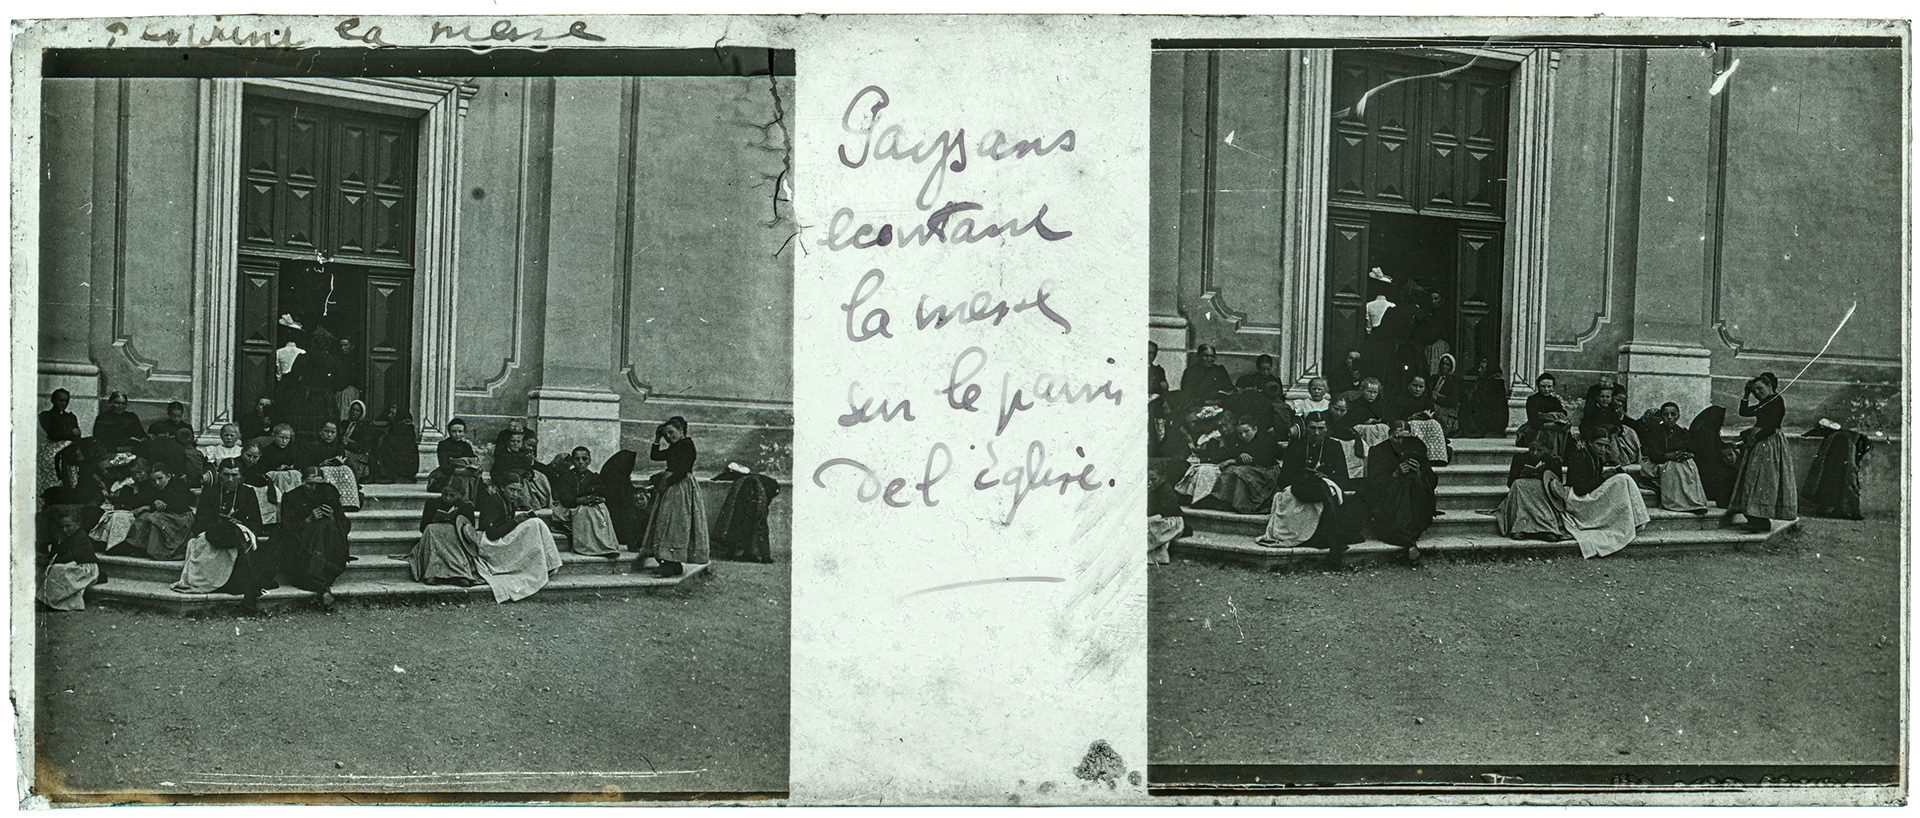 pendant la messe
Paysans
ecoutant
la messe
sur le parvis
de l'Église.